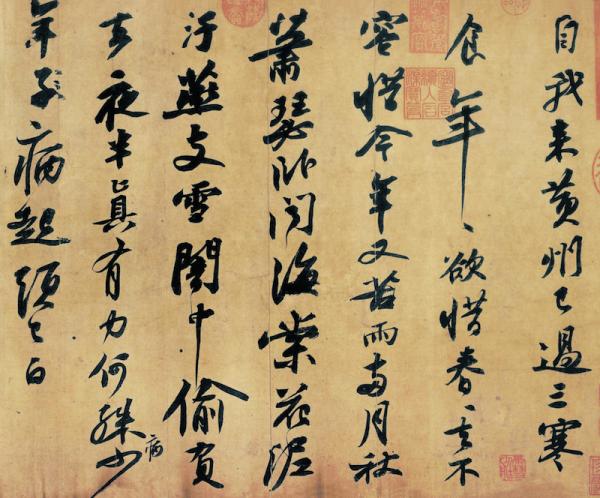 自我來黃州已過三寒
食年〻欲惜春〻去不
容惜今年又苦雨兩月秋
蕭瑟臥聞海棠花泥
汙燕支雪闇中偷負
去夜半真有力何殊病少
年子病起頭已白